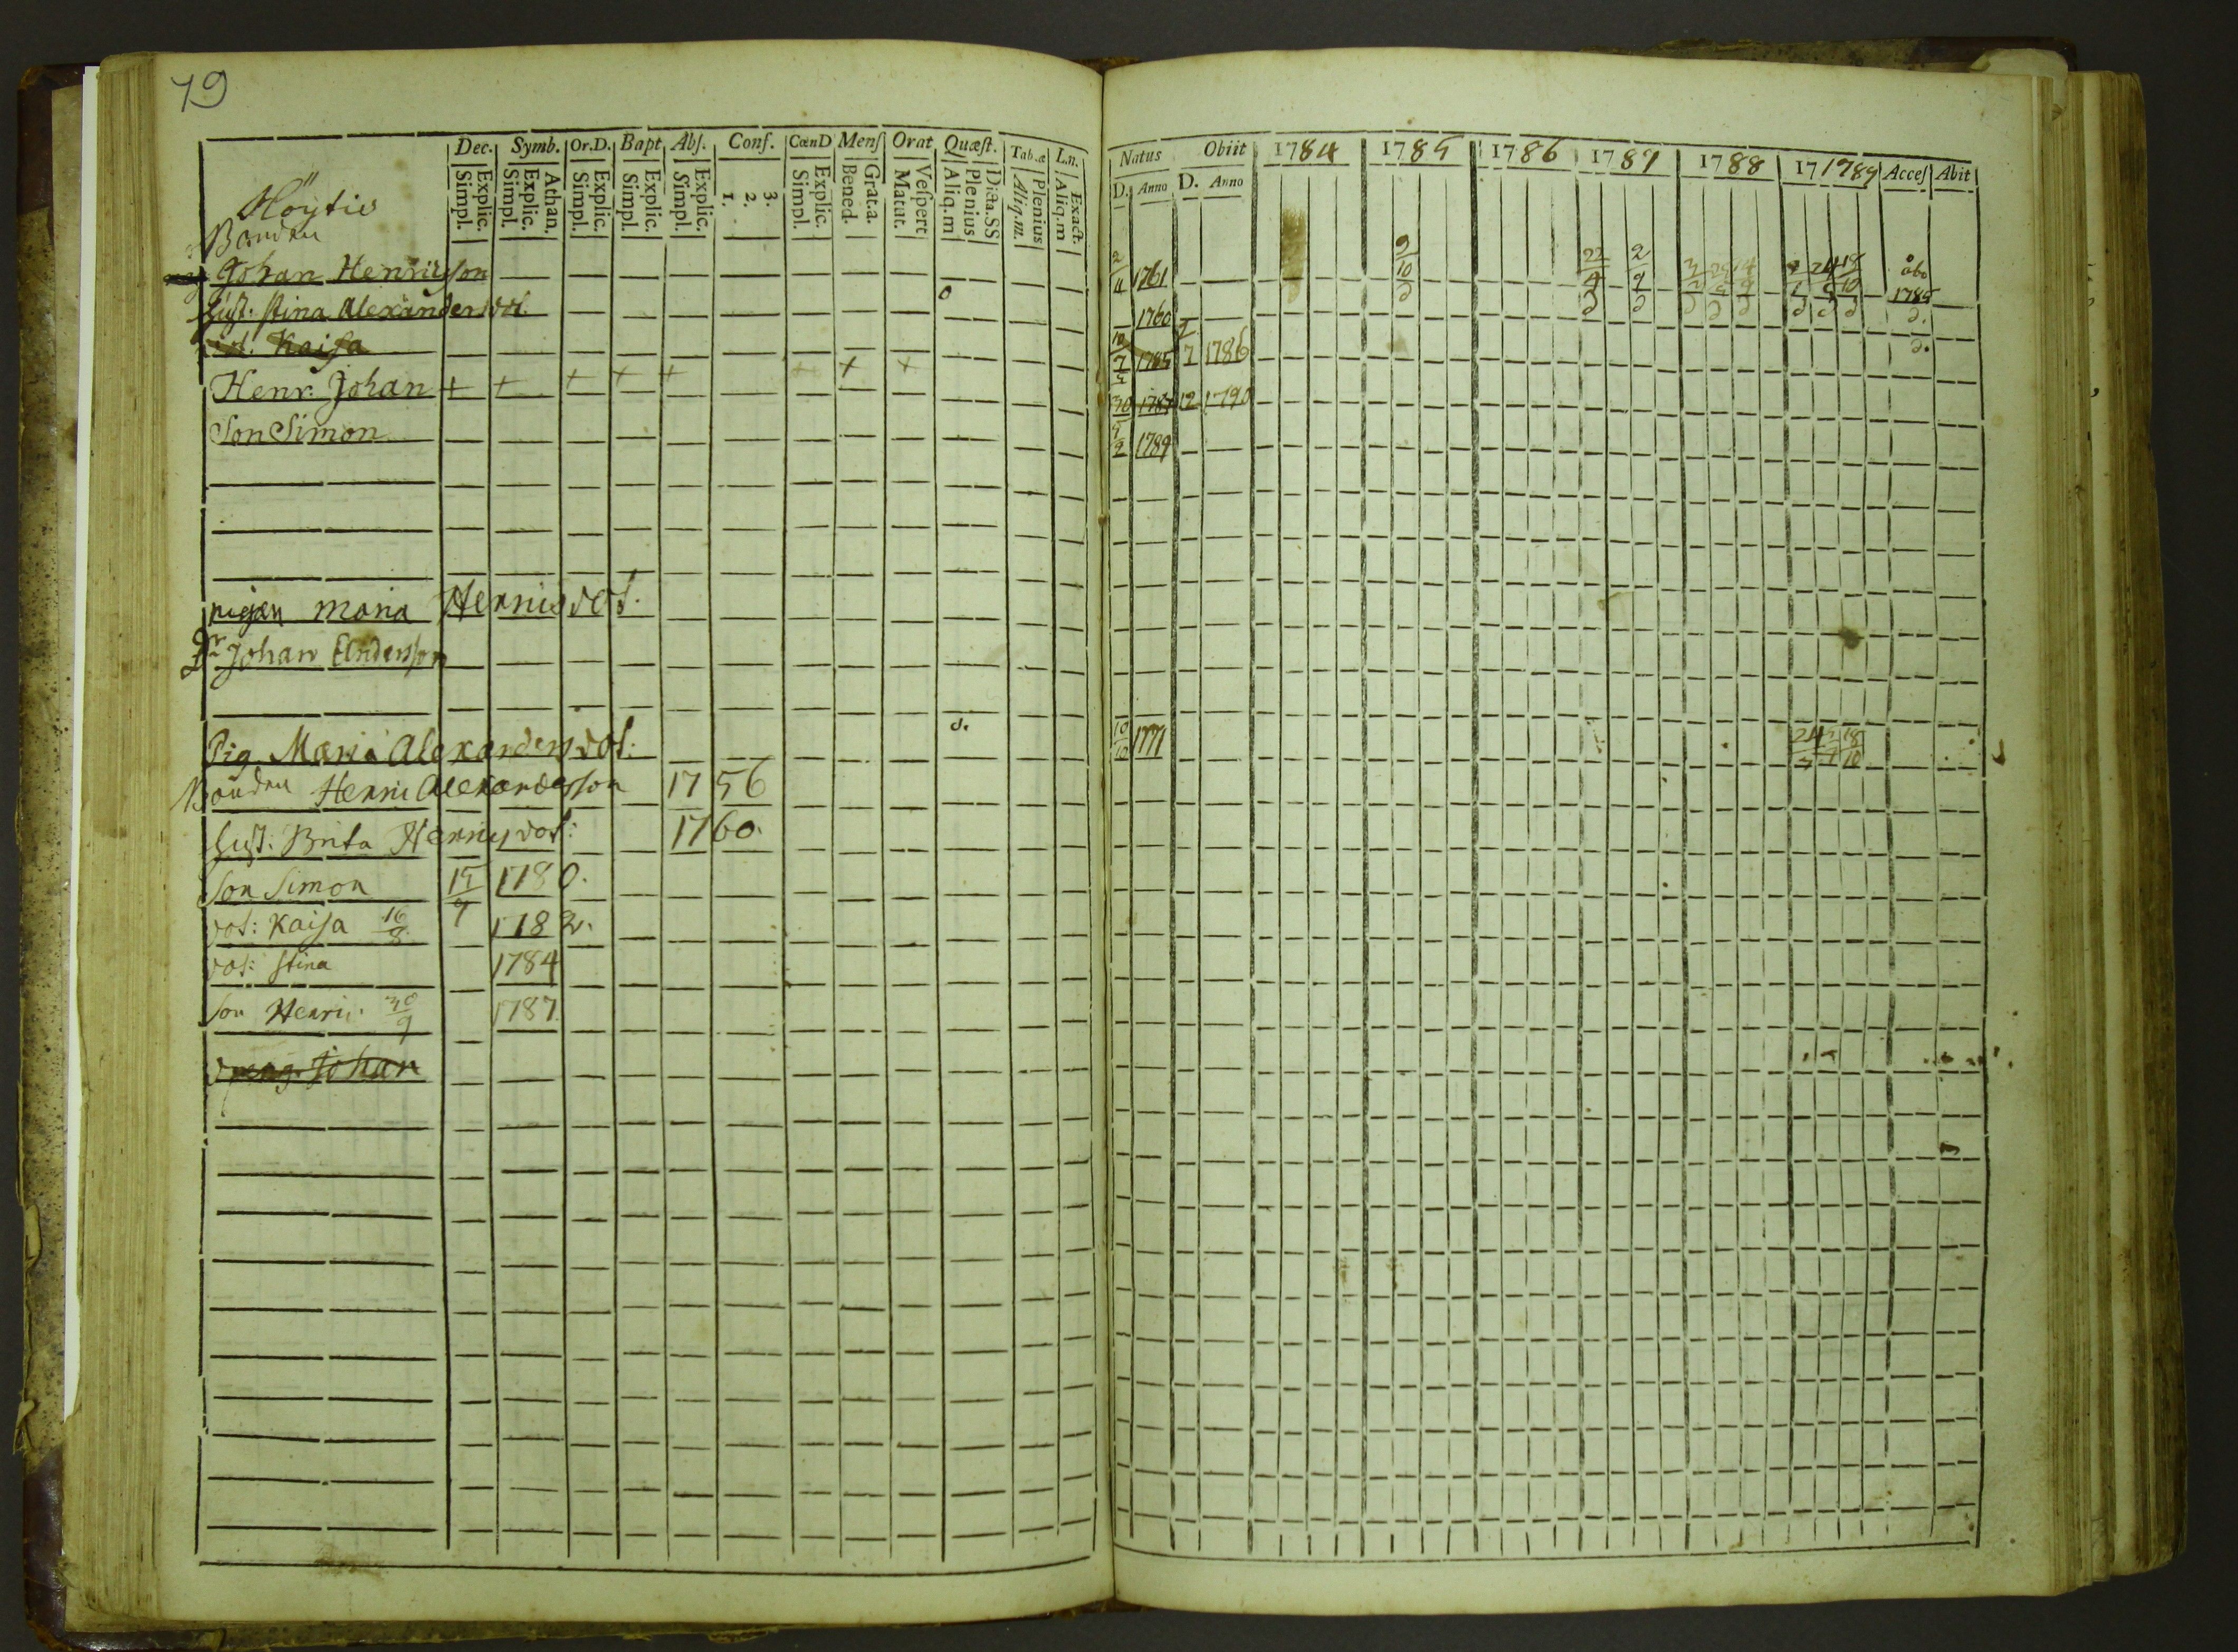 79
Dec. Symb. Or.D. Bapt Abſ. Conf. CœnD Menſ Orat Quæſt. Tab.æ L.n. Natus Obiit 1784 1785 1786 1787 1788 17 1789 Acceſ Abit
Explic. Simpl. Athan. Explic. Simpl. Explic. Simpl. Explic. Simpl. Explic. Simpl. 3. 2. 1. Explic. Simpl. Grat.a. Bened. Veſpert Matut. Dicta.SS Plenius Aliq.m Plenius Aliq.m. Exact. Aliq.m D. Anno D. Anno
Höytis
Bonden
Johan Henricsson 2/11 1761 9/10 22/9 2/9 åbo 1785
Hust. Stina Alexandersdot. o 1760
dot. Kaisa 10/7 1785 7 1786
Henr. Johan + + + + + + + + 30 1787 12 1790
Son Simon 1789
pigan Maria Hennisdot.
Dr Johan Andersson
Pig. Maria Alexandersdot: d. 10/10 1771 24 18/10
Bonden Henric Alexandersson 1756
Hust: Brita Hennisdot: 1760.
Son Simon 15/9 1780.
dot: Kaisa 16/8 1782.
dot: Stina 1784
Son Henric 30/9 1787
dreng. Johan